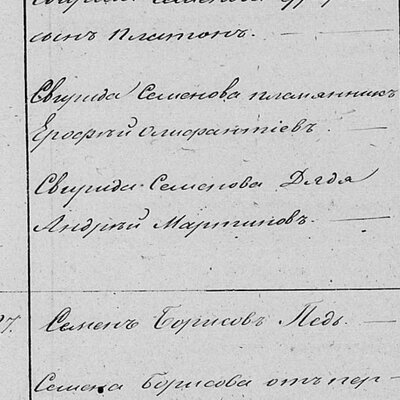 сынъ Платонъ.
Свирида Семенова племянникъ
Ерофѣй Алифантіевъ.
Свирида Семенова Дядя
Андрѣй Мартиновъ.
7. Семенъ Борисовъ Педь.
Семена Борисова отъ пер-